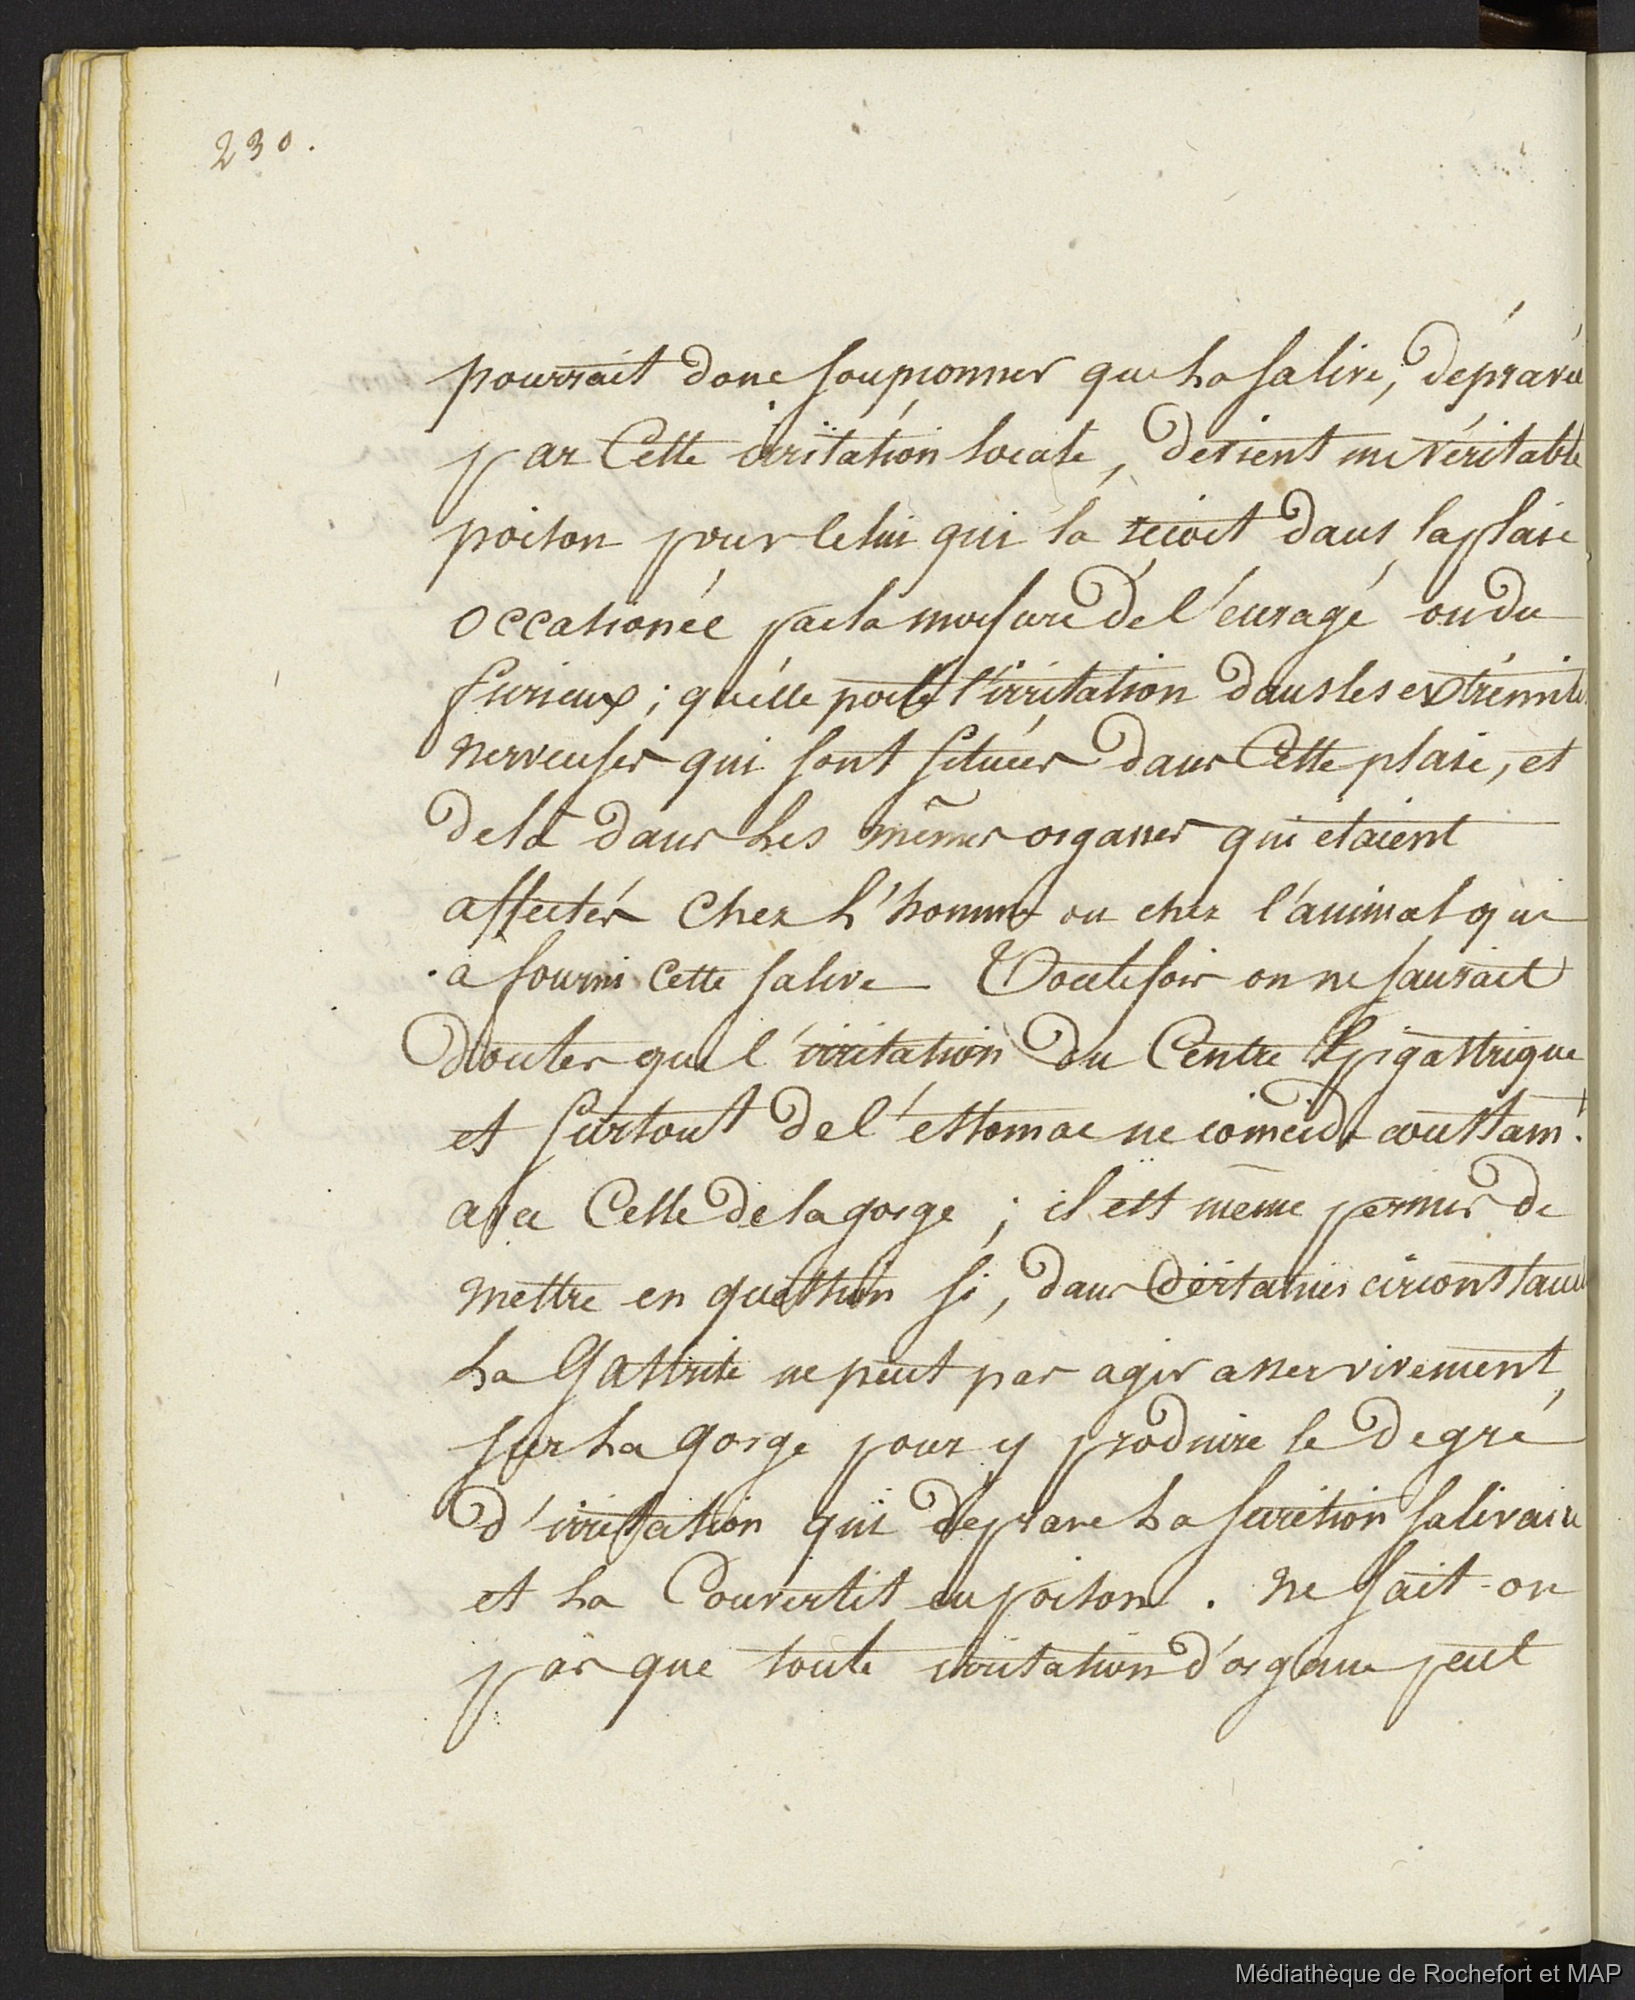 230.
pourrait donc soupçonner que la salive, dépravée
par Cette irritation locale, devient un véritable
poison pour celui qui la reçoit dans la plaie
occasionée par la morsure de l'enragé ou du
furieux ; quélle porte l'irritation dans les extrémités
nerveuses qui sont situées dans Cette plaie, et
delà dans les mêmes organes qui étaient
affectés Chez l'homme ou chez l'animal qui
a fourni Cette salive Toutefois on ne saurait
douter que l'irritation du Centre Epigastrique
et surtout de l'estomac ne coincide constamt.
avec Celle de la gorge ; il est même permis de
mettre en question si, dans Certaines circonstances
la Gastrite ne peut pas agir assez vivement,
sur la gorge pour y produire le degré
d'irritation qui déprave la secrétion salivaire
et la Convertit en poison. Ne sait-on
pas que toute irritation d'organe peut
Médiathèque de Rochefort et MAP